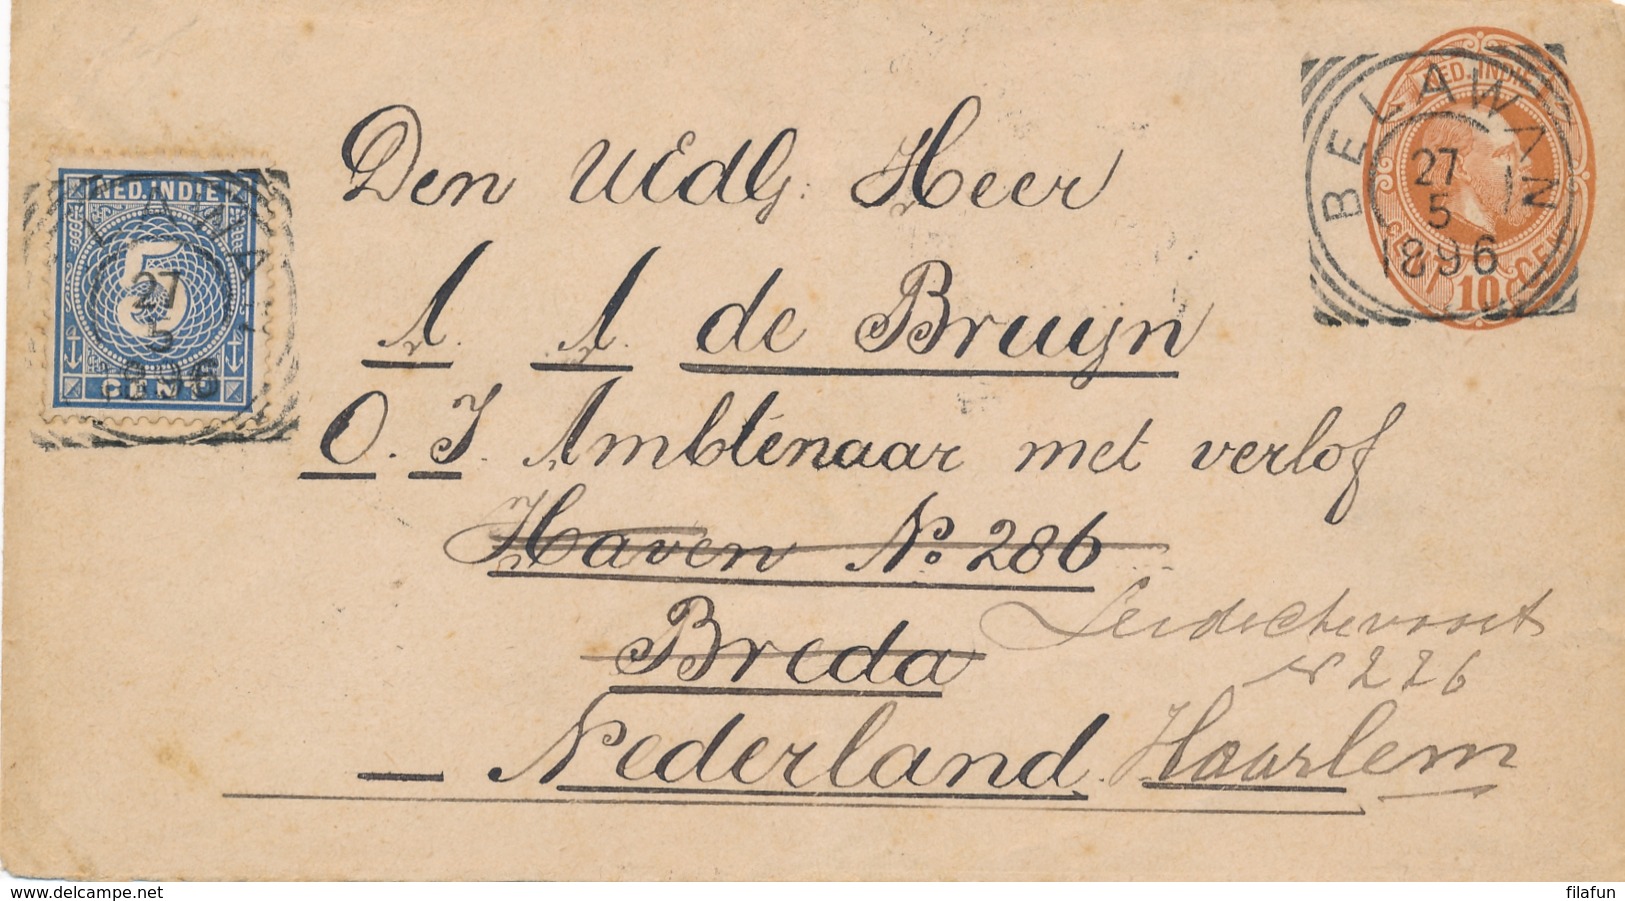 NED. INDIE
5
CENT
LAWA
27
5
1896
NED. INDIE
10
CENT
BELAWAN
27
5
1896
Den WEdG: Heer
A. A. de Bruyn
O. I. Ambtenaar met verlof
Haven No. 286
Breda
Leidschevaart
N 226
Nederland Haarlem
www.delcampe.net
filafun